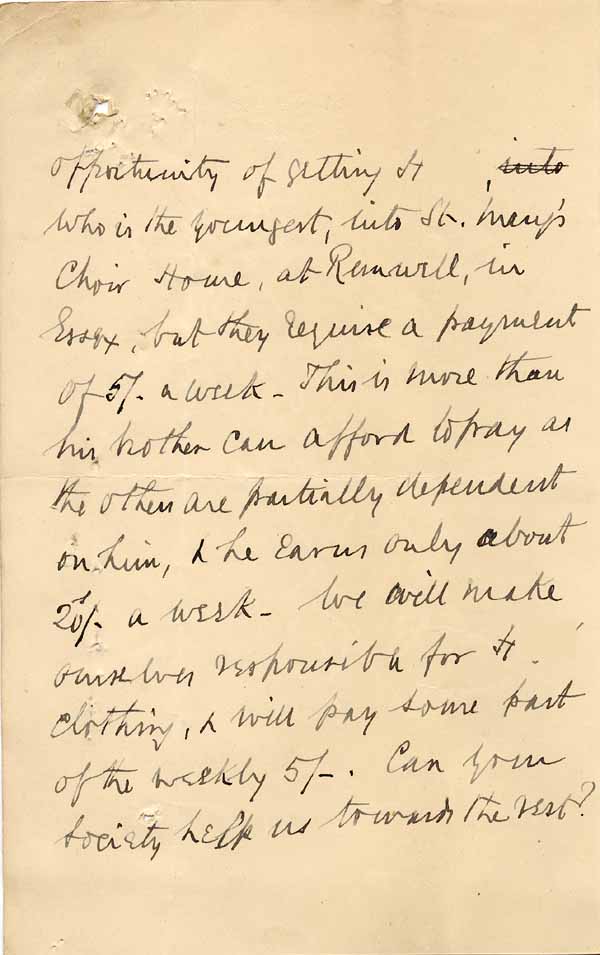 opportunity of getting H , into
who is the youngest, into St. Mary's
Choir Home, at Runwell, in
Essex, but they require a payment
of 5/- a week - This is more than
his brother can afford to pay as
the others are partially dependent
on him, & he earns only about
20/- a week - We will make
ourselves responsible for H
clothing, & will pay some part
of the weekly 5/-. Can your
Society help us towards the rest?